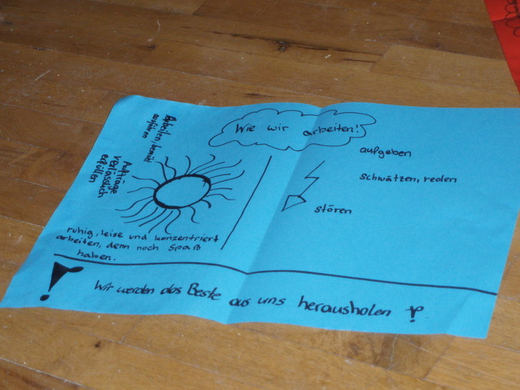 Wie wir arbeiten!
Aufträge
verlässlich
erfüllen
ruhig, leise und konzentriert
arbeiten, dem noch Spaß
haben.
aufgeben
schwätzen, reden
stören
Wir werden das Beste aus uns herausholen !